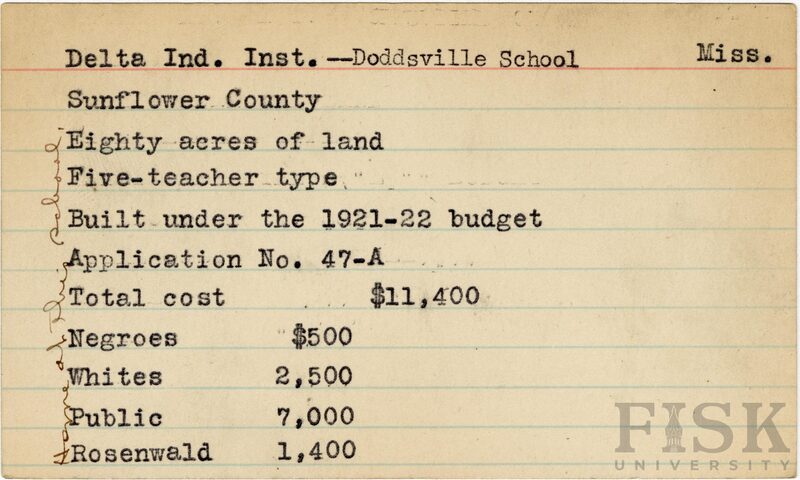 Delta Ind. Inst.—Doddsville School Miss.
Sunflower County
Eighty acres of land
Five-teacher type
Built under the 1921-22 budget
Application No. 47-A
Total cost $11,400
Negroes $500
Whites 2,500
Public 7,000
Rosenwald 1,400
School
FISK
UNIVERSITY